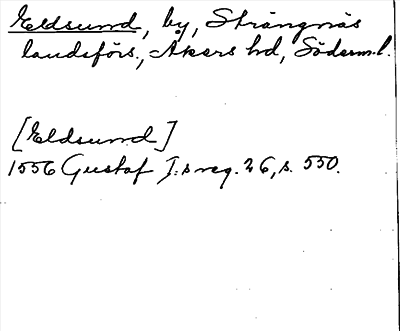 Eldsund, by, Strängnäs
landsförs., Åkers hd, Söderm.l.
[Eldsund]
1556 Gustaf I:s reg. 26, s. 550.